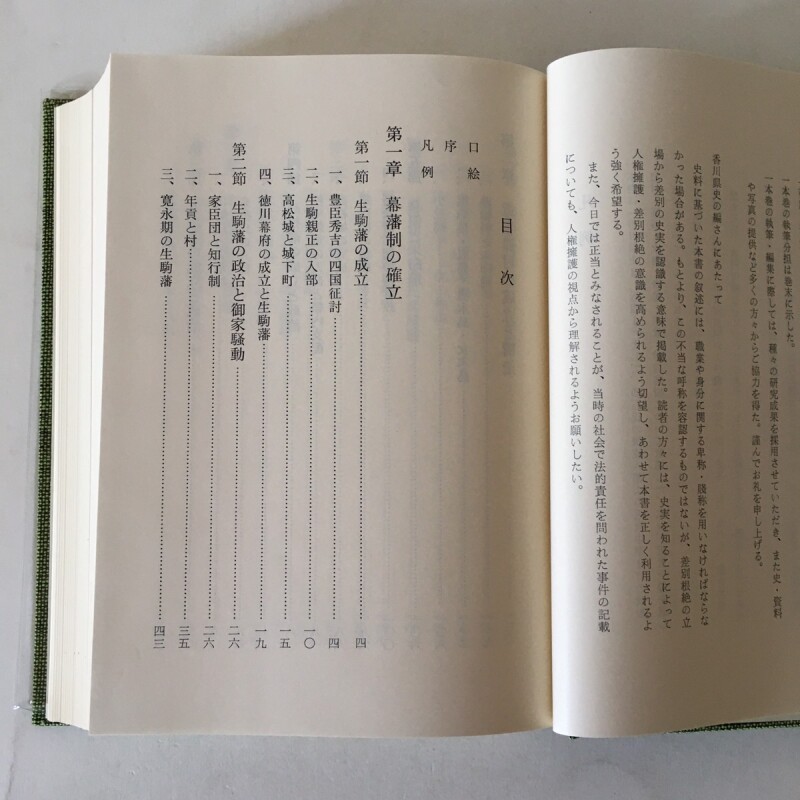 一本巻の執筆分担は巻末に示した。
一本巻の執筆・編集に際しては、種々の研究成果を採用させていただき、また史・資料
や写真の提供など多くの方々からご協力を得た。謹んでお礼を申し上げる。
香川県史の編さんにあたって
史料に基づいた本書の叙述には、職業や身分に関する卑称・賤称を用いなければならな
かった場合がある。もとより、この不当な呼称を容認するものではないが、差別根絶の立
場から差別の史実を認識する意味で掲載した。読者の方々には、史実を知ることによって
人権擁護・差別根絶の意識を高められるよう切望し、あわせて本書を正しく利用されるよ
う強く希望する。
また、今日では正当とみなされることが、当時の社会で法的責任を問われた事件の記載
についても、人権擁護の視点から理解されるようお願いしたい。
目次
口絵
序
凡例
第一章 幕藩制の確立
第一節 生駒藩の成立……四
一、豊臣秀吉の四国征討……四
二、生駒親正の入部……一〇
三、高松城と城下町……一五
四、徳川幕府の成立と生駒藩……一九
第二節 生駒藩の政治と御家騒動……二六
一、家臣団と知行制……二六
二、年貢と村……三五
三、寛永期の生駒藩……四三